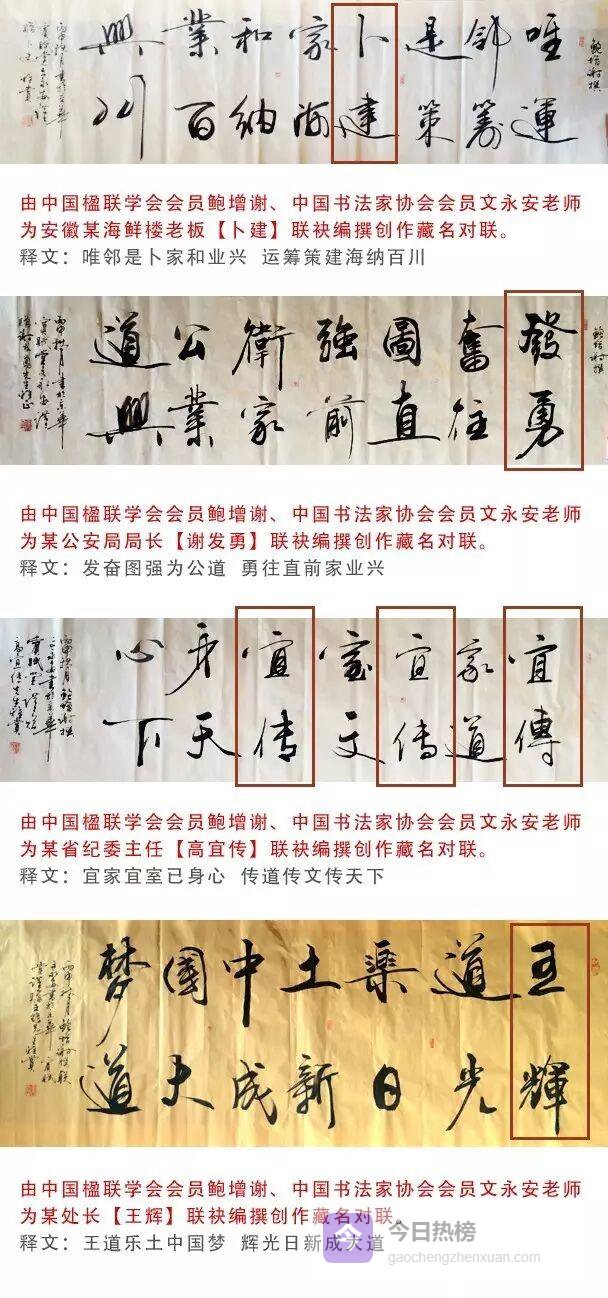 鲍增谢撰
唯邻是卜家和業興
運籌策建海纳百川
由中国楹联学会会员鲍增谢、中国书法家协会会员文永安老师
为安徽某海鲜楼老板【卜建】联袂编撰创作藏名对联。
释文：唯邻是卜家和业兴 运筹策建海纳百川
鲍增谢撰
發奮圖強衛公道
勇往直前家業興
由中国楹联学会会员鲍增谢、中国书法家协会会员文永安老师
为某公安局局长【谢发勇】联袂编撰创作藏名对联。
释文：发奋图强为公道 勇往直前家业兴
宜家宜室宜身心
傳道传文传天下
由中国楹联学会会员鲍增谢、中国书法家协会会员文永安老师
为某省纪委主任【高宜传】联袂编撰创作藏名对联。
释文：宜家宜室已身心 传道传文传天下
王道樂土中國梦
輝光日新成大道
由中国楹联学会会员鲍增谢、中国书法家协会会员文永安老师
为某处长【王辉】联袂编撰创作藏名对联。
释文：王道乐土中国梦 辉光日新成大道
今日热榜
gaochengzhenxuan.com